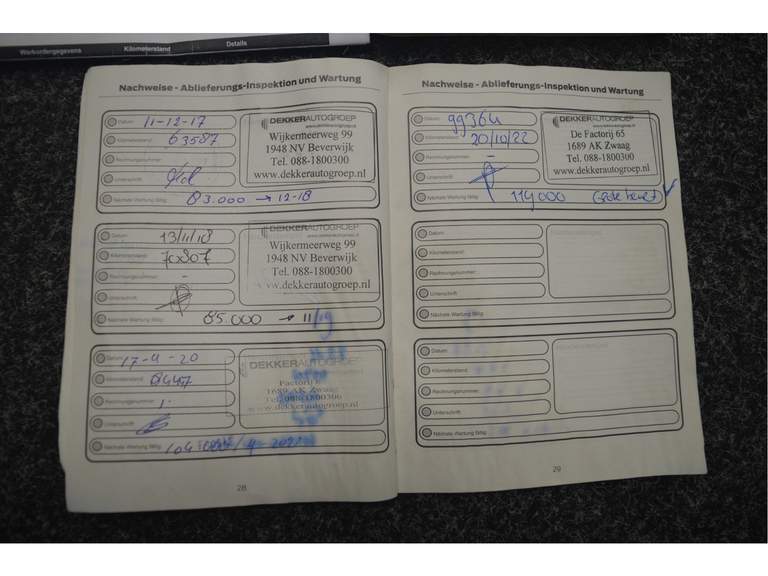 Werkordergegevens
Kilometerstand
Details
Nachweise - Ablieferungs-Inspektion und Wartung
Datum: 11-12-17
Kilometerstand: 63587
Rechnungsnummer:
Unterschrift:
Nächste Wartung fällig: 83.000 → 12-18
DEKKERAUTOGROEP
Wijkermeerweg 99
1948 NV Beverwijk
Tel. 088-1800300
www.dekkerautogroep.nl
Datum: 13/11/18
Kilometerstand: 70807
Rechnungsnummer: -
Unterschrift:
Nächste Wartung fällig: 85.000 → 11/19
DEKKERAUTOGROEP
Wijkermeerweg 99
1948 NV Beverwijk
Tel. 088-1800300
www.dekkerautogroep.nl
Datum: 17-4-20
Kilometerstand:
Rechnungsnummer:
Unterschrift:
Nächste Wartung fällig:
DEKKERAUTOGROEP
1689 AK Zwaag
www.dekkerautogroep.nl
28
Nachweise - Ablieferungs-Inspektion und Wartung
Datum: 99364
Kilometerstand: 20/10/22
Rechnungsnummer: -
Unterschrift:
Nächste Wartung fällig: 119000
DEKKERAUTOGROEP
De Factorij 65
1689 AK Zwaag
Tel. 088-1800300
www.dekkerautogroep.nl
Datum:
Kilometerstand:
Rechnungsnummer:
Unterschrift:
Nächste Wartung fällig:
Datum:
Kilometerstand:
Rechnungsnummer:
Unterschrift:
Nächste Wartung fällig:
29